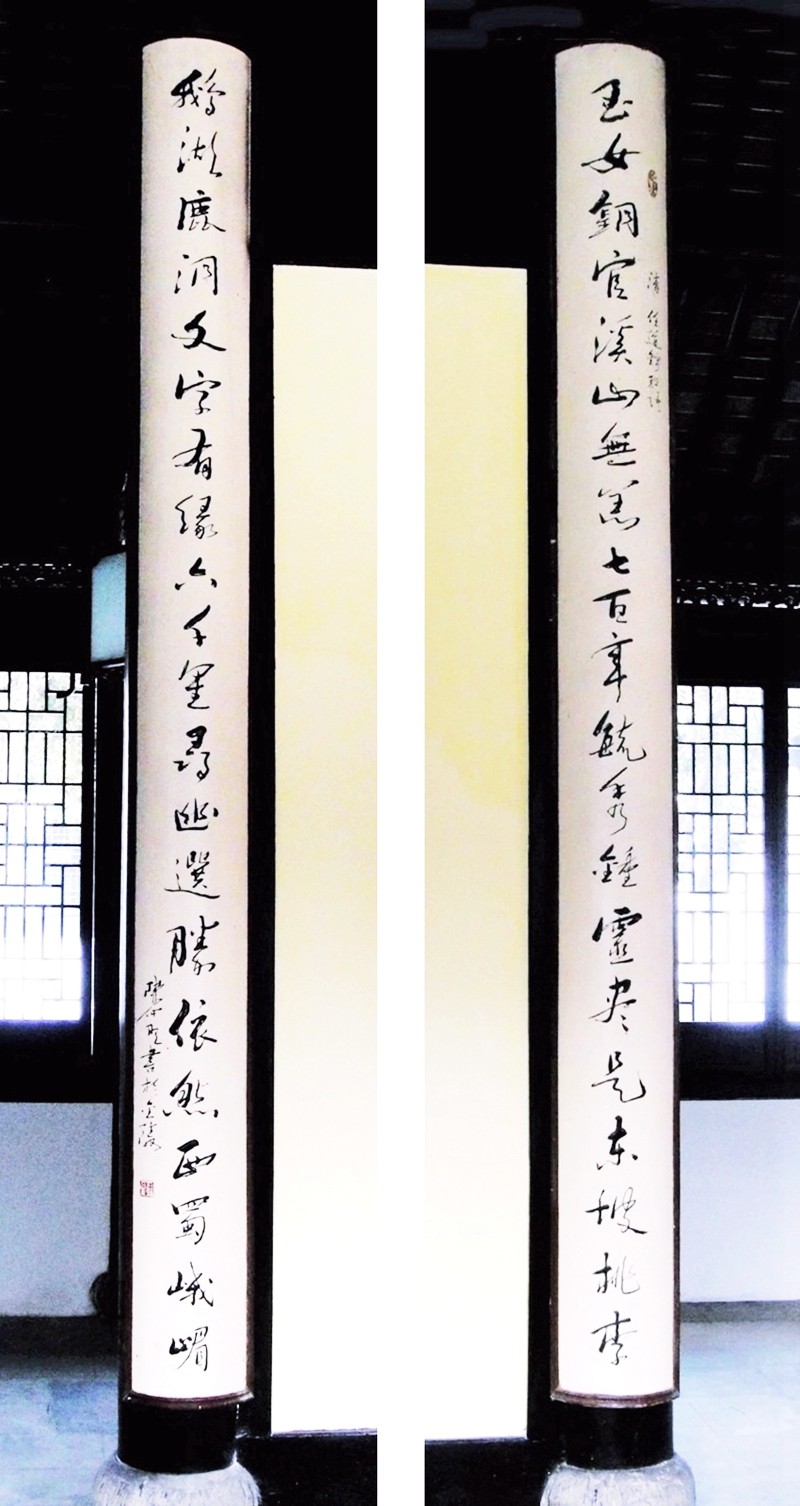 玉女銅官溪山無恙七百年毓秀鍾靈尽是東坡桃李
清 任道鎔聯語
鵝湖鹿洞文字有緣六千里尋幽選勝依然西蜀峨嵋
書於金陵